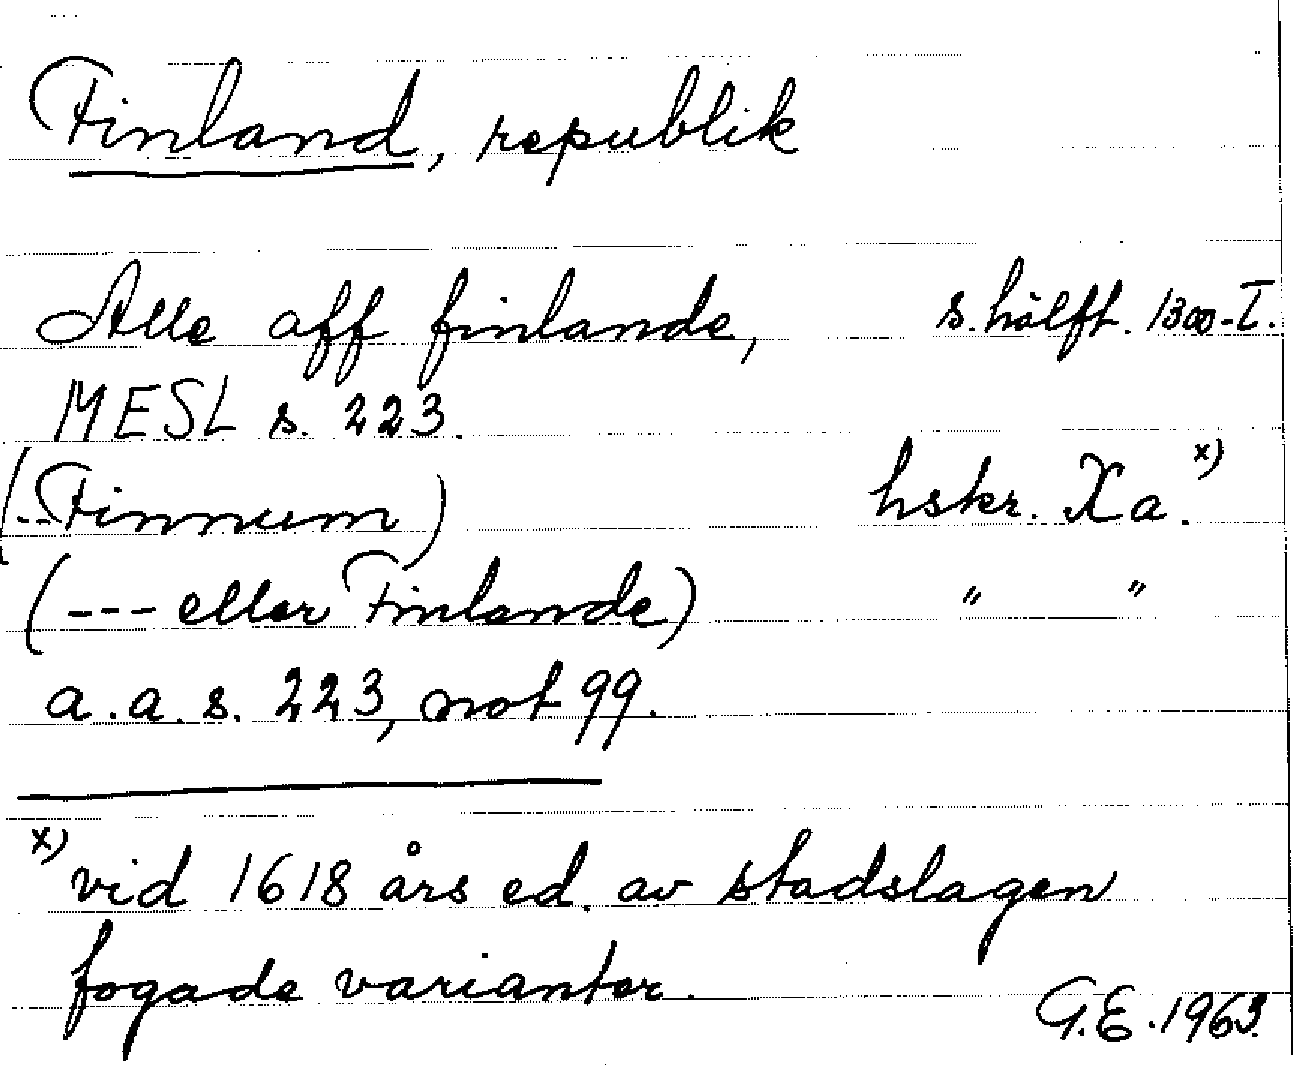 Finland, republik
Alle aff finlande, s. hälft. 1300-T.
MESL s. 223.
(--Finnum) hskr. Xa.x)
(--- eller Finlande) " "
a.a.s. 223, not 99.
x) vid 1618 års ed. av stadslagen
fogade varianter.
G.E. 1963.